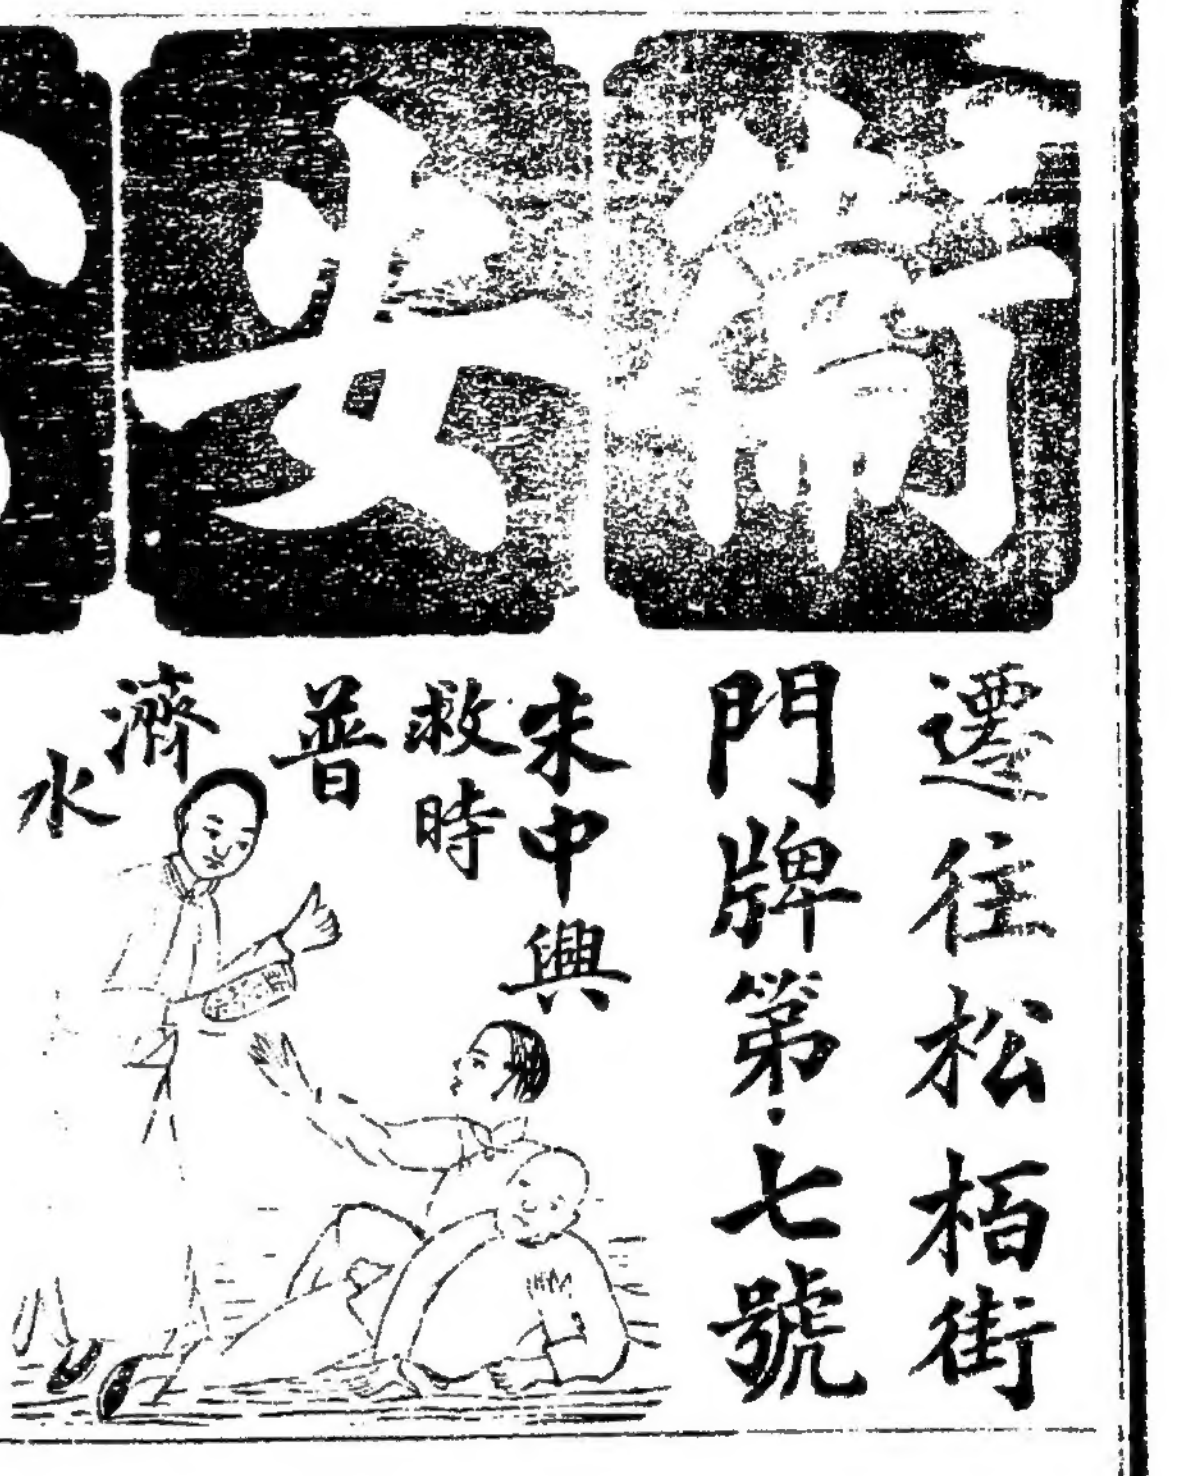 衞安
遷往松栢街
門牌第七號
朱中興
救時
普濟水